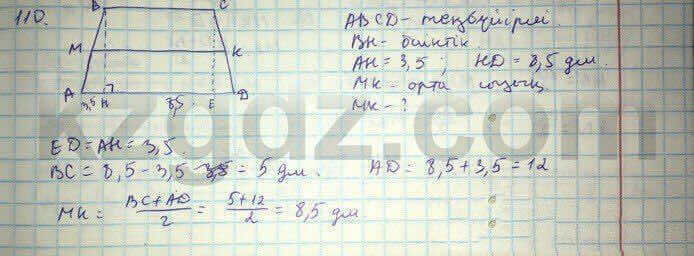 110.
B C
M K
A 3,5 H 8,5 E D
ABCD - теңбүйірлі.
BH - биіктік
AH = 3,5; HD = 8,5 дм.
MK - орта сызық
MK - ?
kzgdz.com
ED = AH = 3,5.
BC = 8,5 - 3,5 = 5 дм. AD = 8,5 + 3,5 = 12
MK = BC + AD / 2 = 5 + 12 / 2 = 8,5 дм.